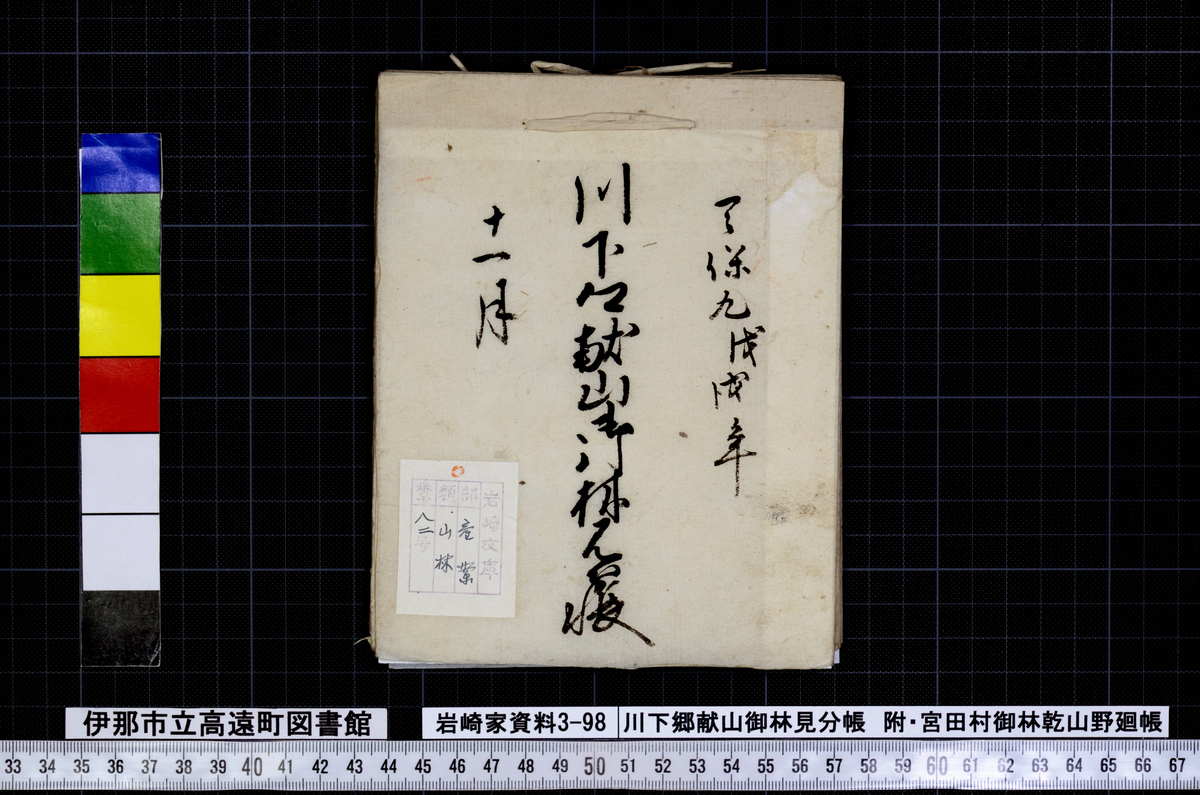 天保九戊戌年
川下郷献山御林見分帳
十一月
岩崎文庫
部 産業
類 山林
番 八二号
伊那市立高遠町図書館
岩崎家資料3-98
川下郷献山御林見分帳 附・宮田村御林乾山野廻帳
33 34 35 36 37 38 39 40 41 42 43 44 45 46 47 48 49 50 51 52 53 54 55 56 57 58 59 60 61 62 63 64 65 66 67